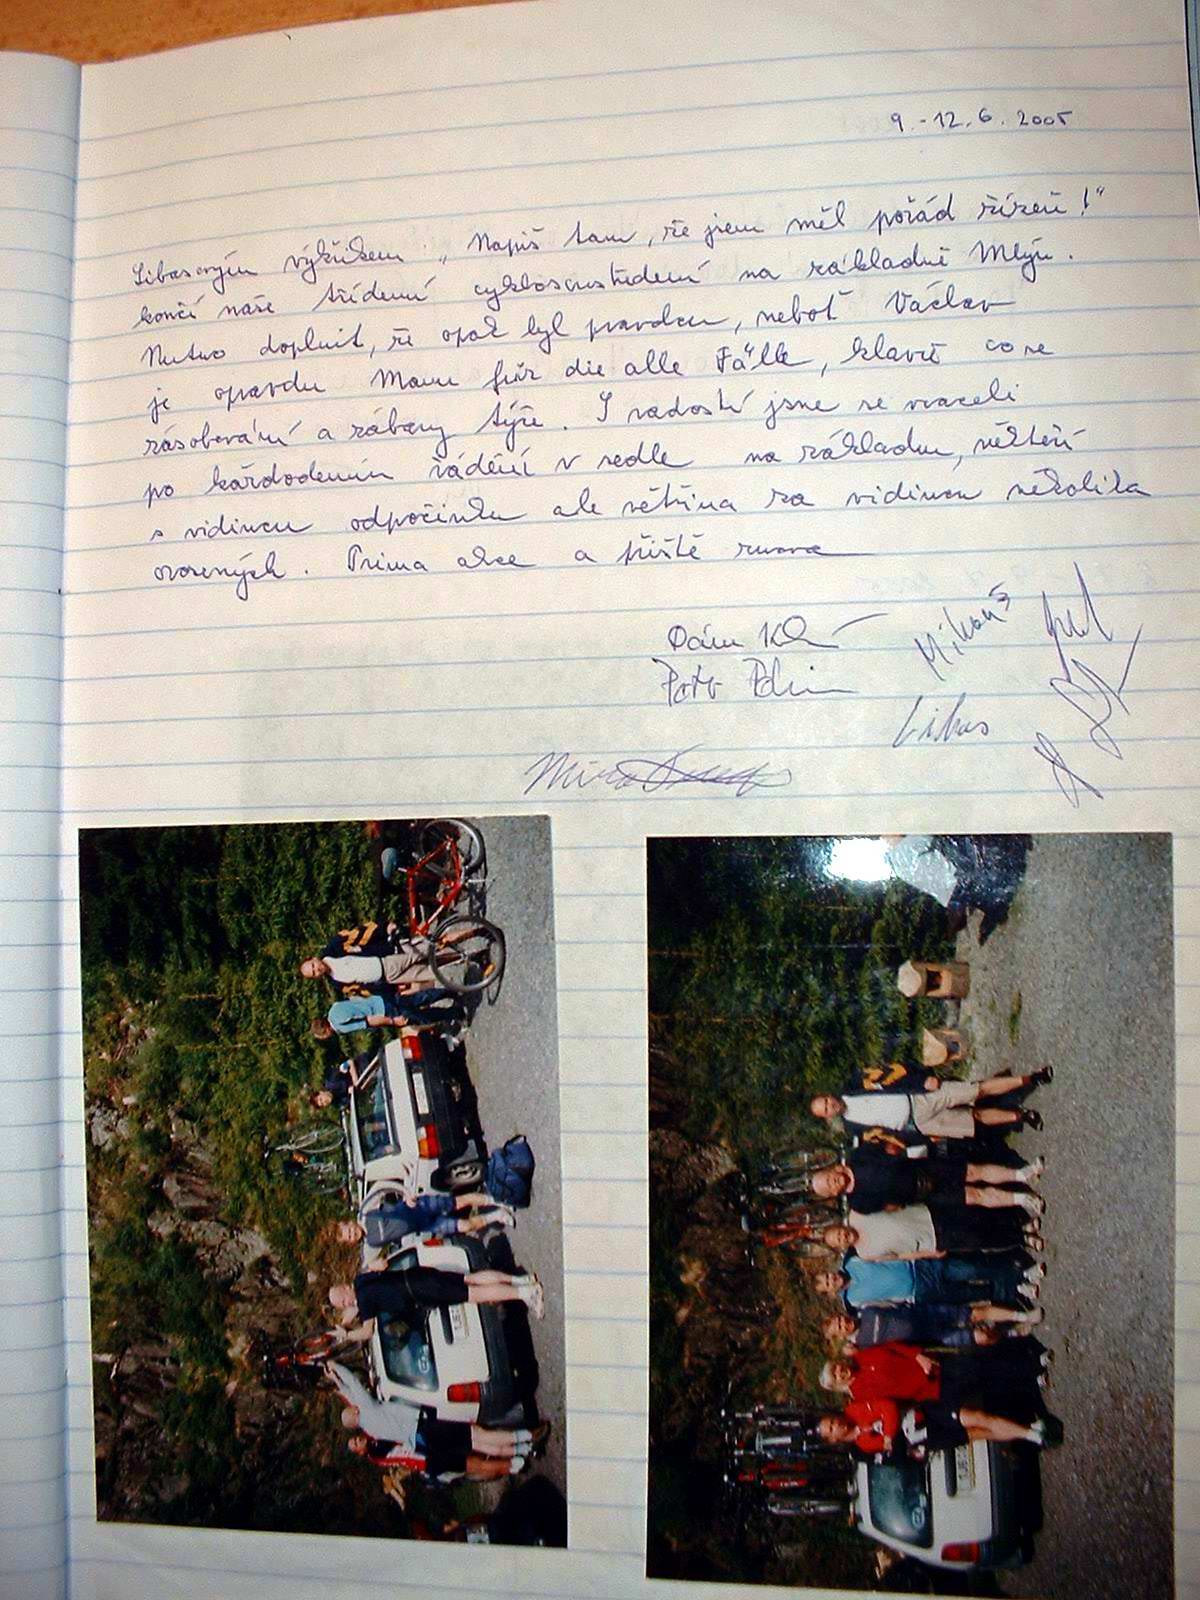 9.-12.6.2005
Libasovým výkřikem „Napiš tam, že jsem měl pořád žízeň!“
končí naše třídenní cyklosoustředění na základně Mlýn.
Nutno doplnit, že opak byl pravdou, neboť Václav
je opravdu Mann für die alle Fälle, hlavně co se
zásobování a zábavy týče. S radostí jsme se vraceli
po každodenním řádění v sedle na základnu, někteří
s vidinou odpočinku ale většina za vidinou několika
orosených. Prima akce a příště znova
Mikouš
Petr
Libas
Mira